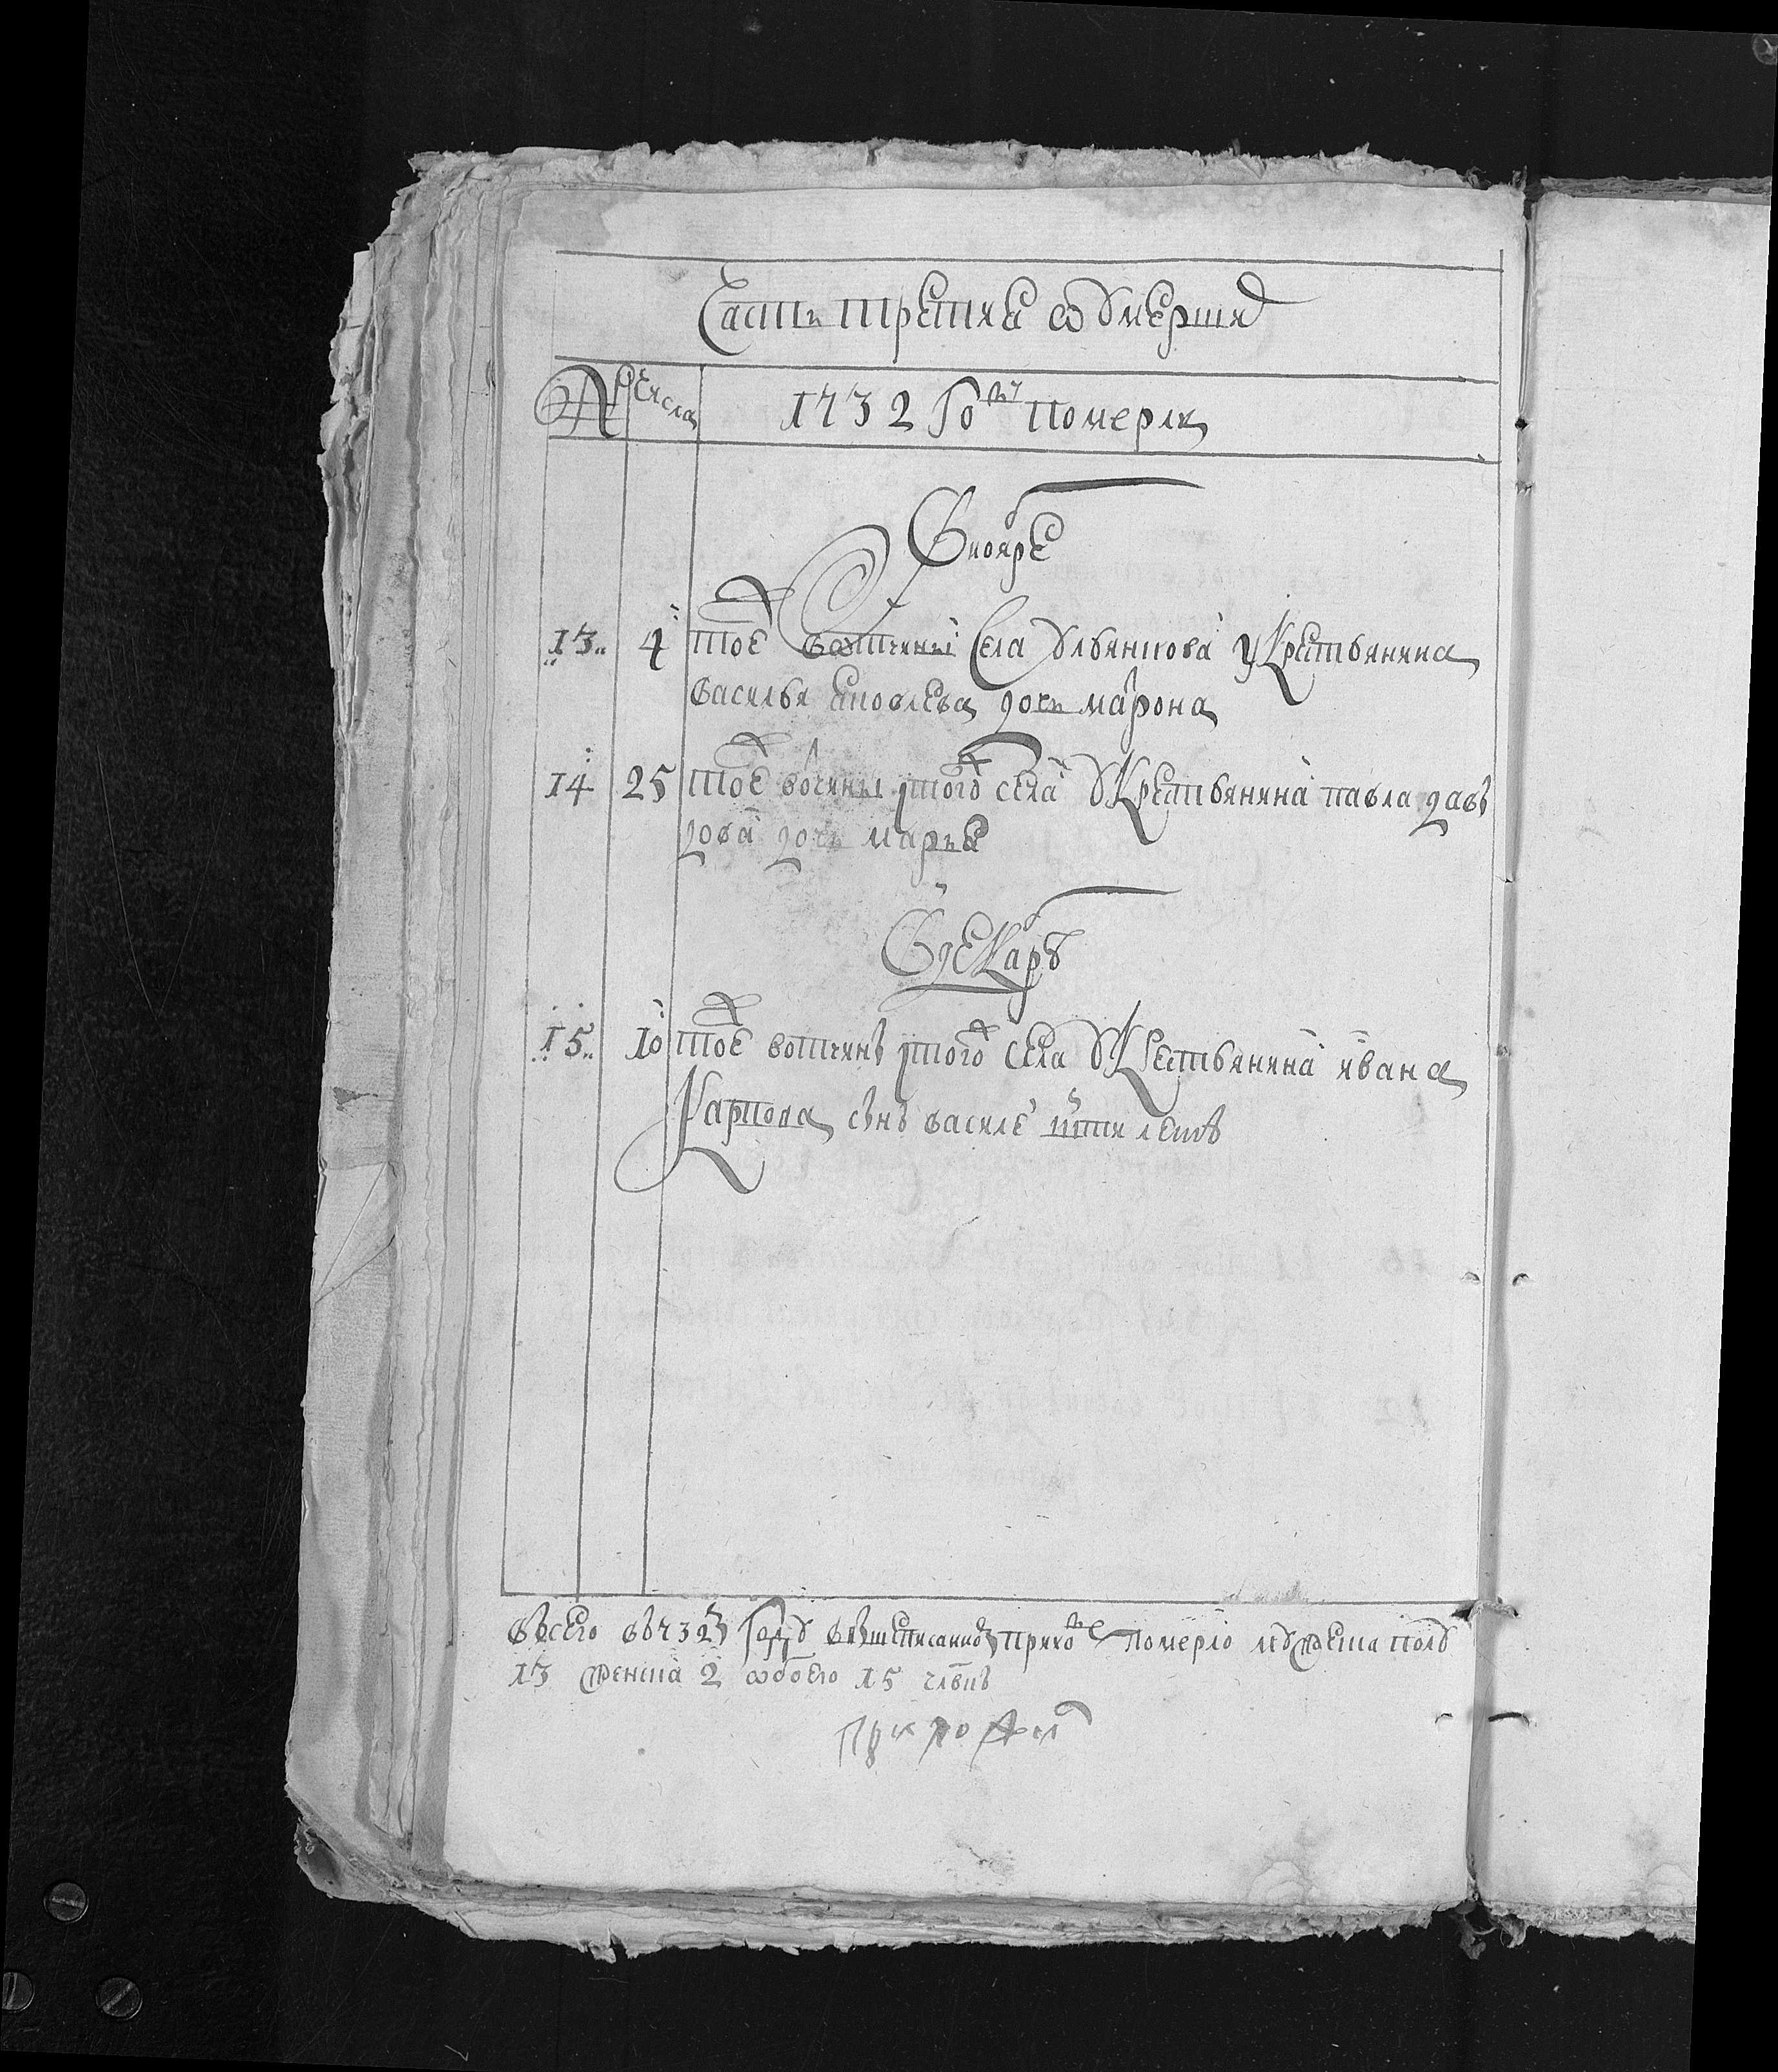 Часть третия ѡ умерших
№ числа 1732 году померли
В ноябре
13 4 тоеж вотчины села Ульянкова у крестьянина
василья яковлева дочь мафрона
14 25 тоеж вотчины тогож села у крестьянина павла давы
дова дочь марья
В декабрѣ
15 10 тоеж вотчины тогож села у крестьянина ивана
Карпова сынъ василей лѣтъ
всего в 732м году в вышеписанном приходе померло мужеска полу
13 женска 2 ѡбоего 15 члвкъ